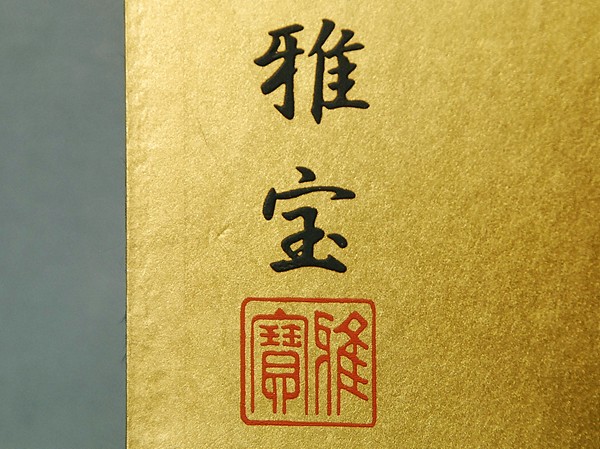 雅宝
雅寶